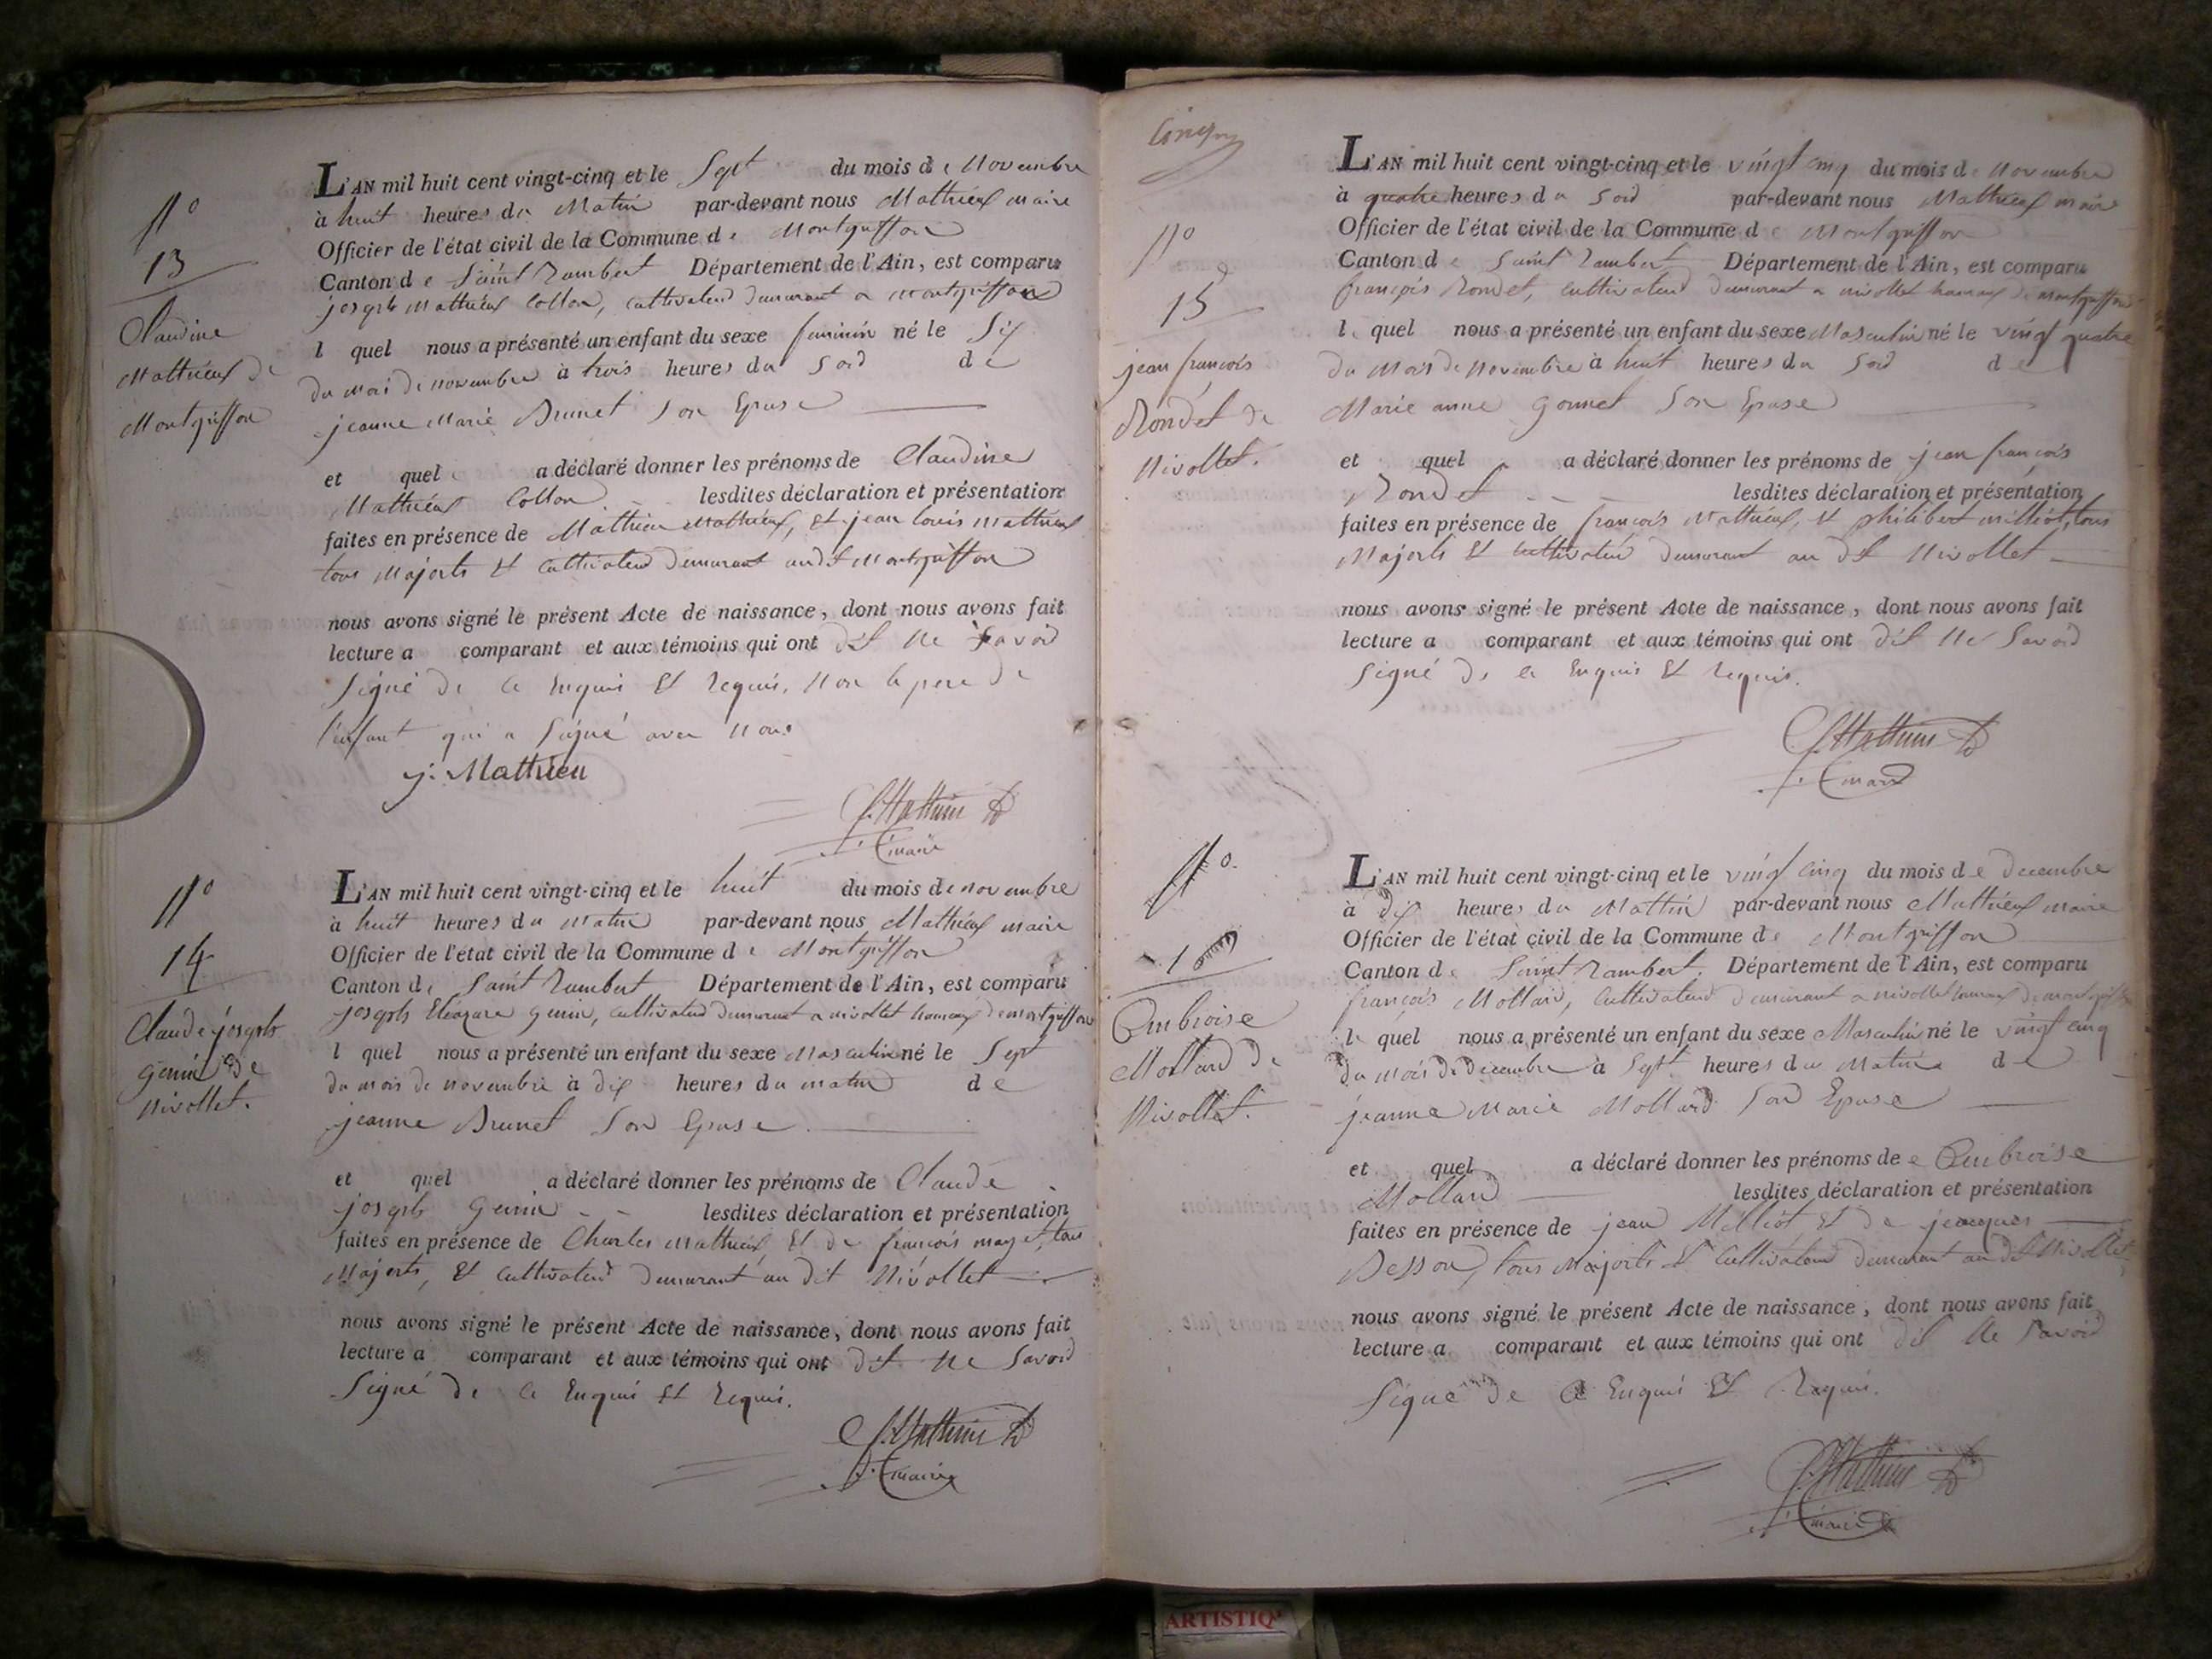 N°
13
Claudine
Mathieux de
Montgriffon
L'AN mil huit cent vingt-cinq et le Sept du mois de Novembre
à huit heures du Matin par-devant nous Mathieux maire
Officier de l'état civil de la Commune de Montgriffon
Canton de Saint Rambert Département de l'Ain, est comparu
joseph Mathieux Collon, cultivateur demeurant a Montgriffon
l quel nous a présenté un enfant du sexe feminin né le Six
du mois de novembre à trois heures du Soir de
jeanne Marie Brunet Son Epouse
et quel a déclaré donner les prénoms de Claudine
Mathieux Collon lesdites déclaration et présentation
faites en présence de Mathieu Mathieux, et jean louis mathieux
tous Majors et cultivateur demeurant audit Montgriffon
nous avons signé le présent Acte de naissance, dont nous avons fait
lecture a comparant et aux témoins qui ont dit ne Savoir
Signé de ce Enquis et requis, Non le pere de
l'enfant qui a Signé avec Nous
j. Mathieu
Mathieux
maire
N°
14
Claude joseph
genin de
Nivollet.
L'AN mil huit cent vingt-cinq et le huit du mois de novembre
à huit heures du matin par-devant nous Mathieux maire
Officier de l'état civil de la Commune de Montgriffon
Canton de Saint Rambert Département de l'Ain, est comparu
joseph Eleazare genin, cultivateur demeurant a nivollet hameau de montgriffon
l quel nous a présenté un enfant du sexe Masculin né le Sept
du mois de novembre à dix heures du matin de
jeanne Brunet Son Epouse.
et quel a déclaré donner les prénoms de Claude
joseph Genin lesdites déclaration et présentation
faites en présence de Charles Mathieux, et de françois mayet, tous
Majors, et cultivateur demeurant au dit Nivollet
nous avons signé le présent Acte de naissance, dont nous avons fait
lecture a comparant et aux témoins qui ont dit ne Savoir
Signé de ce Enquis et requis.
Mathieux
maire
Cinq
N°
15
jean françois
Rondet de
Nivollet.
L'AN mil huit cent vingt-cinq et le vingt cinq du mois de Novembre
à quatre heures du Soir par-devant nous Mathieux maire
Officier de l'état civil de la Commune de Montgriffon
Canton de Saint Rambert Département de l'Ain, est comparu
françois Rondet, cultivateur demeurant a nivollet hameau de montgriffon
le quel nous a présenté un enfant du sexe Masculin né le vingt quatre
du Mois de Novembre à huit heures du Soir de
Marie anne gonnet Son Epouse
et quel a déclaré donner les prénoms de jean françois
Rondet lesdites déclaration et présentation
faites en présence de françois Mathieux, et philibert milliot, tous
Majors et cultivateur demeurant au dit Nivollet
nous avons signé le présent Acte de naissance, dont nous avons fait
lecture a comparant et aux témoins qui ont dit Ne Savoir
Signé de ce Enquis et requis.
Mathieux
maire
N°
Ambroise
Mollard de
Nivollet.
L'AN mil huit cent vingt-cinq et le vingt cinq du mois de decembre
à dix heures du Mattin par-devant nous Mathieux maire
Officier de l'état civil de la Commune de Montgriffon
Canton de Saint Rambert. Département de l'Ain, est comparu
françois Mollard, cultivateur demeurant a nivollet hameau de montgriffon
le quel nous a présenté un enfant du sexe Masculin né le vingt cinq
du mois de decembre à Sept heures du Matin de
jeanne Marie Mollard Son Epouse
et quel a déclaré donner les prénoms de Ambroise
Mollard lesdites déclaration et présentation
faites en présence de jean Milliot et de jacques
Besson, tous Majors et cultivateur demeurant audit Nivollet,
nous avons signé le présent Acte de naissance, dont nous avons fait
lecture a comparant et aux témoins qui ont dit Ne Savoir
Signé de ce Enquis et Requis.
Mathieux
maire
ARTISTIQ